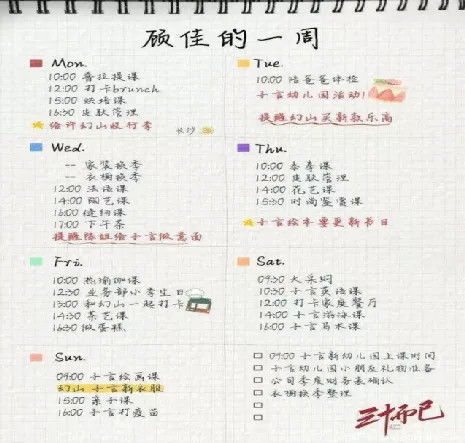 顾佳的一周
Mon.
10:00 普拉提课
12:00 打卡brunch
15:00 烘培课
16:30 皮肤管理
给许幻山收行李
长沙
Tue
10:00 陪爸爸体检
子言幼儿园活动!
提醒幻山买新款乐高
Wed.
-- 家装换季
-- 衣橱换季
12:00 法语课
14:00 陶艺课
16:00 缝纫课
17:00 下午茶
提醒陈姐给子言做意面
Thu.
10:00 泰拳课
12:00 皮肤管理
14:00 花艺课
15:30 时尚鉴赏课
子言绘本要更新书目
Fri.
10:00 热瑜伽课
12:30 业务部小李生日
13:00 和幻山一起打卡
14:30 茶艺课
16:30 做蛋糕
Sat.
09:30 大采购
10:30 子言英语课
12:00 打卡家庭餐厅
14:00 子言游泳课
16:00 子言马术课
Sun.
09:00 子言绘画课
幻山 子言新衣服
15:00 亲子课
16:00 子言打疫苗
09:00 子言新幼儿园上课时间
子言幼儿园小朋友礼物准备
公司季度财务表确认
衣橱换季整理
三十而已